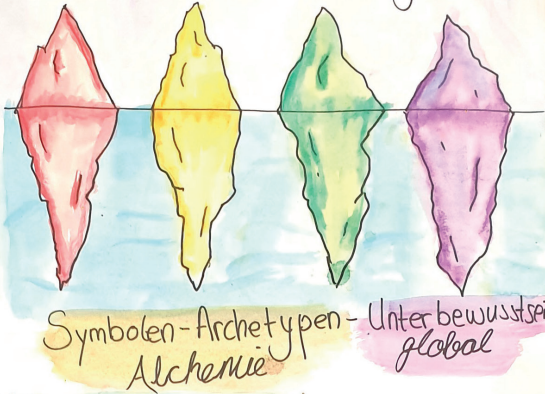 Symbolen-Archetypen-Unterbewusstsei
Alchemie global